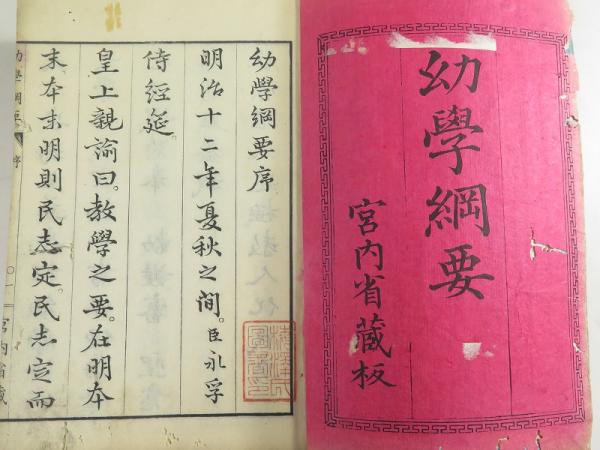 幼學綱要
宮內省藏板
幼學綱要序
明治十二年夏秋之間。臣永孚
侍經筵。
皇上親諭曰。教學之要。在明本
末。本末明則民志定。民志定而
幼學綱要
序
○一
宮內省藏